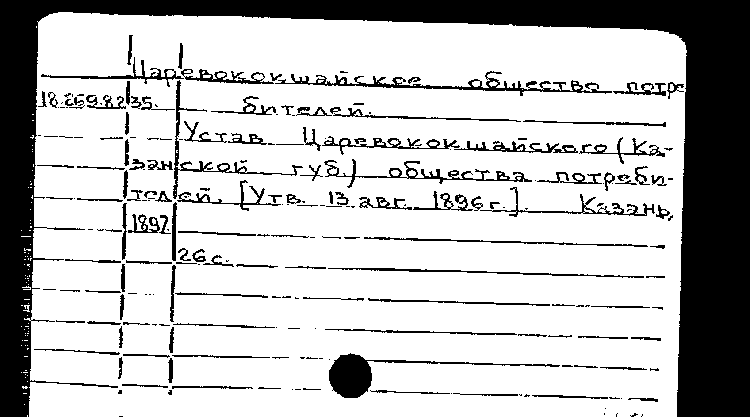 Царевококшайское общество потре
18.259.8235. бителей.
Устав Царевококшайского (Ка-
занской губ.) общества потреби-
телей. [Утв. 13 авг. 1896 г.]. Казань,
1897.
26 с.